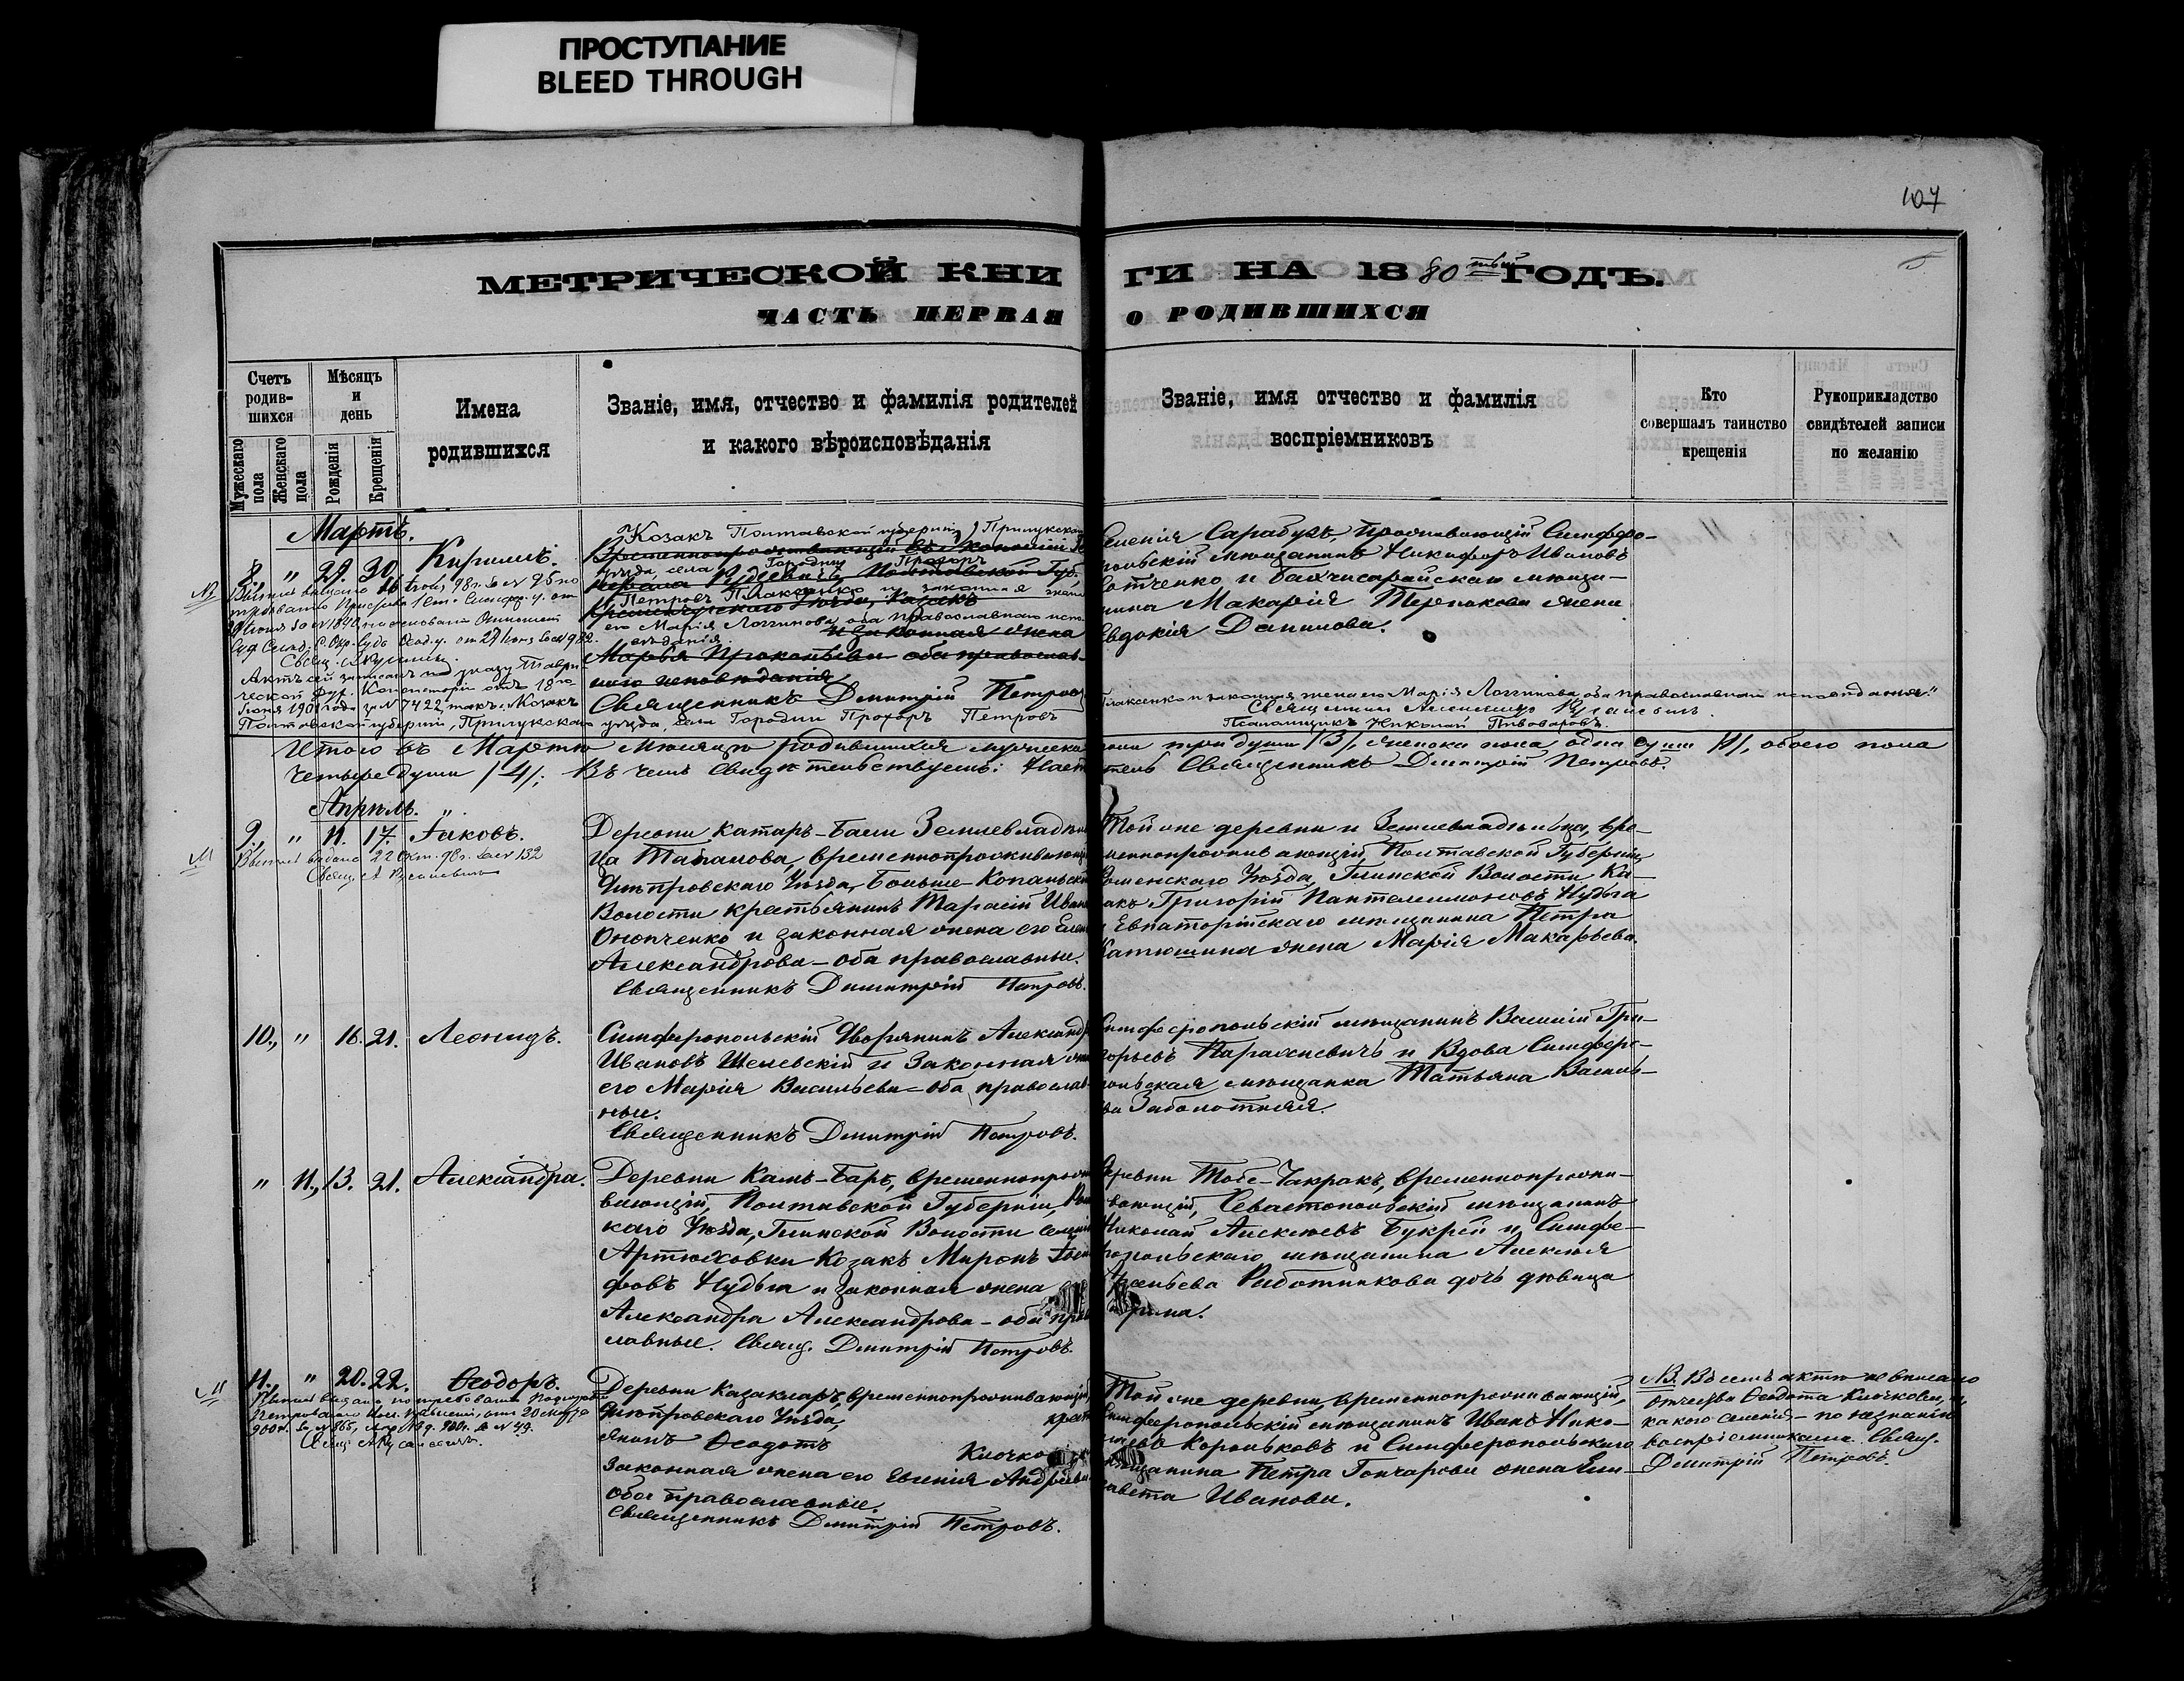 ПРОСТУПАНИЕ
BLEED THROUGH
107
МЕТРИЧЕСКОЙ КНИГИ НА 1880 тый ГОДЪ.
ЧАСТЬ ПЕРВАЯ О РОДИВШИХСЯ
Счетъ родившихся
Мужескаго пола
Женскаго пола
Мѣсяцъ и день
Рожденія
Крещенія
Имена родившихся
Званіе, имя, отчество и фамилія родителей
и какого вѣроисповѣданія
Званіе, имя отчество и фамилія
воспріемниковъ
Кто
совершалъ таинство
крещенія
Рукоприкладство
свидѣтелей записи
по желанію
Мартъ.
8., " 29. 30. Кириллъ.
Козакъ Полтавской губерніи, Прилукскаго
уѣзда, села Городни Прохоръ
Петровъ Плаксенко и законная жена
его Марія Логгинова, оба православнаго испо-
вѣданія.
Священникъ Димитрій Петровъ
Селенія Сарабузъ, проживающій Симферо-
польскій мѣщанинъ Никифоръ Ивановъ
и Бахчисарайскаго мѣща-
нина Макарія жена
Евдокія Данилова.
Актъ сей записанъ по указу Таври-
ческой Дух. Консисторіи отъ 18го
Іюня 1901 года за № 7422, такъ: „Козакъ
Полтавской губерніи, Прилукскаго уѣзда, села Городни Прохоръ Петровъ
Плаксенко и законная жена его Марія Логгинова, оба православнаго исповѣданія."
Псаломщикъ Николай Пивоваровъ.
Итого въ Мартѣ мѣсяцѣ родившихся мужеска пола три души /3/, женска пола одна душа /1/, обоего пола
четыре души /4/; Въ чемъ свидѣтельствуемъ: Настоятель Священникъ Димитрій Петровъ.
Апрѣль.
9., " 11. 17. Іаковъ.
Выпись выдана 22 Окт. 98г. за № 132
Деревни Катаръ-Баги Землевладѣль-
ца Таганова, временнопроживающій
Днѣпровскаго Уѣзда, Больше-Копаньской
Волости крестьянинъ Тарасій Иванов
Онопченко и законная жена его Елена
Александрова - оба православные.
Священникъ Димитрій Петровъ.
Той же деревни и Землевладѣльца, вре-
меннопроживающій, Полтавской Губерніи,
Роменскаго Уѣзда, Глинской Волости Ка-
закъ Григорій Пантелеимоновъ Нудьга
и Евпаторійскаго мѣщанина Петра
Катюшина жена Марія Макарьева.
10., " 16. 21. Леонидъ.
Симферопольскій Дворянинъ Александръ
Ивановъ Шелевскій и Законная жена
его Марія Васильева - оба православ-
ные.
Священникъ Димитрій Петровъ.
Симферопольскій мѣщанинъ Василій Гри-
горьевъ и Вдова Симферо-
польская мѣщанка Татьяна Василь-
ева Заболотняя.
" 11., 13. 21. Александра.
Деревни Камъ-Баръ, временнопрожи-
вающій, Полтавской Губерніи, Ромен-
скаго Уѣзда, Глинской Волости селенія
Артюховки Козакъ Миронъ Іоси-
фовъ Нудьга и законная жена
Александра Александрова - оба право-
славные. Свящ. Димитрій Петровъ.
Деревни Тобе-Чакракъ, временнопрожи-
вающій, Севастопольскій мѣщанинъ
Николай Алексѣевъ Букрѣй и Симфе-
ропольскаго мѣщанина Алексѣя
Работникова дочь дѣвица
11., " 20. 22. Ѳеодоръ.
Деревни Казакларъ, временнопроживающій,
Днѣпровскаго Уѣзда, крестьянинъ
Ѳеодотъ Клочко
законная жена его Евгенія Андреева
оба православные.
Священникъ Димитрій Петровъ.
Той же деревни, временнопроживающій,
Симферопольскій мѣщанинъ Иванъ Нико-
лаевъ Корольковъ и Симферопольскаго
мѣщанина Петра Гончарова жена Ели-
савета Иванова.
NB. Въ семъ актѣ не вписано
отчества Ѳеодота Клочкова, и
какого селенія - по незнанію
воспріемниками. Свящ.
Димитрій Петровъ.